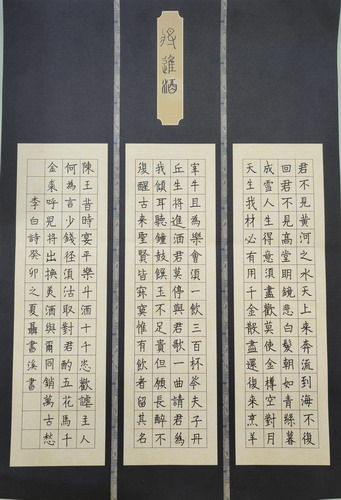 將進酒
君不見黃河之水天上來奔流到海不復
回君不見高堂明鏡悲白髮朝如青絲暮
成雪人生得意須盡歡莫使金樽空對月
天生我材必有用千金散盡還復來烹羊
宰牛且為樂會須一飲三百杯岑夫子丹
丘生將進酒君莫停與君歌一曲請君為
我傾耳聽鐘鼓饌玉不足貴但願長醉不
復醒古來聖賢皆寂寞惟有飲者留其名
陳王昔時宴平樂斗酒十千恣歡謔主人
何為言少錢徑須沽取對君酌五花馬千
金裘呼兒將出換美酒與爾同銷萬古愁
李白詩癸卯之夏聶書溪書